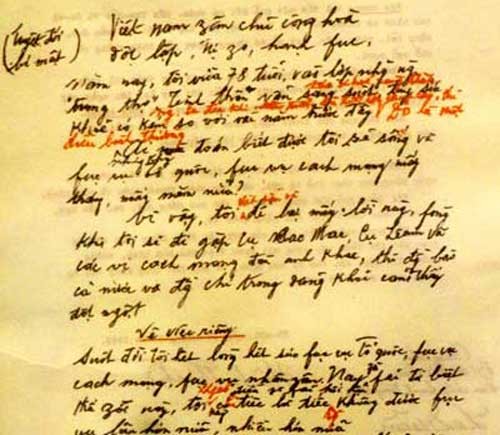 (Tuyệt đối bí mật)
Việt nam zân chủ cộng hoà
độc lập, tự zo, hạnh fúc.
Năm nay, tôi vừa 78 tuổi, vào lớp những người
"trung thọ". Tinh thần vẫn sáng suốt, tuy sức
khoẻ có kém so với vài năm trước đây. Đó là một
điều bình thường.
Ai mà đoán biết được tôi sẽ sống và
fục vụ tổ quốc, fục vụ cách mạng mấy
tháng, mấy năm nữa?
Vì vậy, tôi để lại mấy lời này, fòng
khi tôi sẽ đi gặp cụ Các Mác, Cụ Lênin và
các vị cách mạng đàn anh khác, thì đồng bào
cả nước và đồng chí trong đảng khỏi cảm thấy
đột ngột.
Về việc riêng
Suốt đời tôi hết lòng hết sức fục vụ tổ quốc, fục vụ
cách mạng, fục vụ nhân zân. Nay zù fải từ biệt
thế zới này, tôi không có điều gì fải hối hận, chỉ tiếc là tiếc không được fục
vụ lâu hơn nữa, nhiều hơn nữa